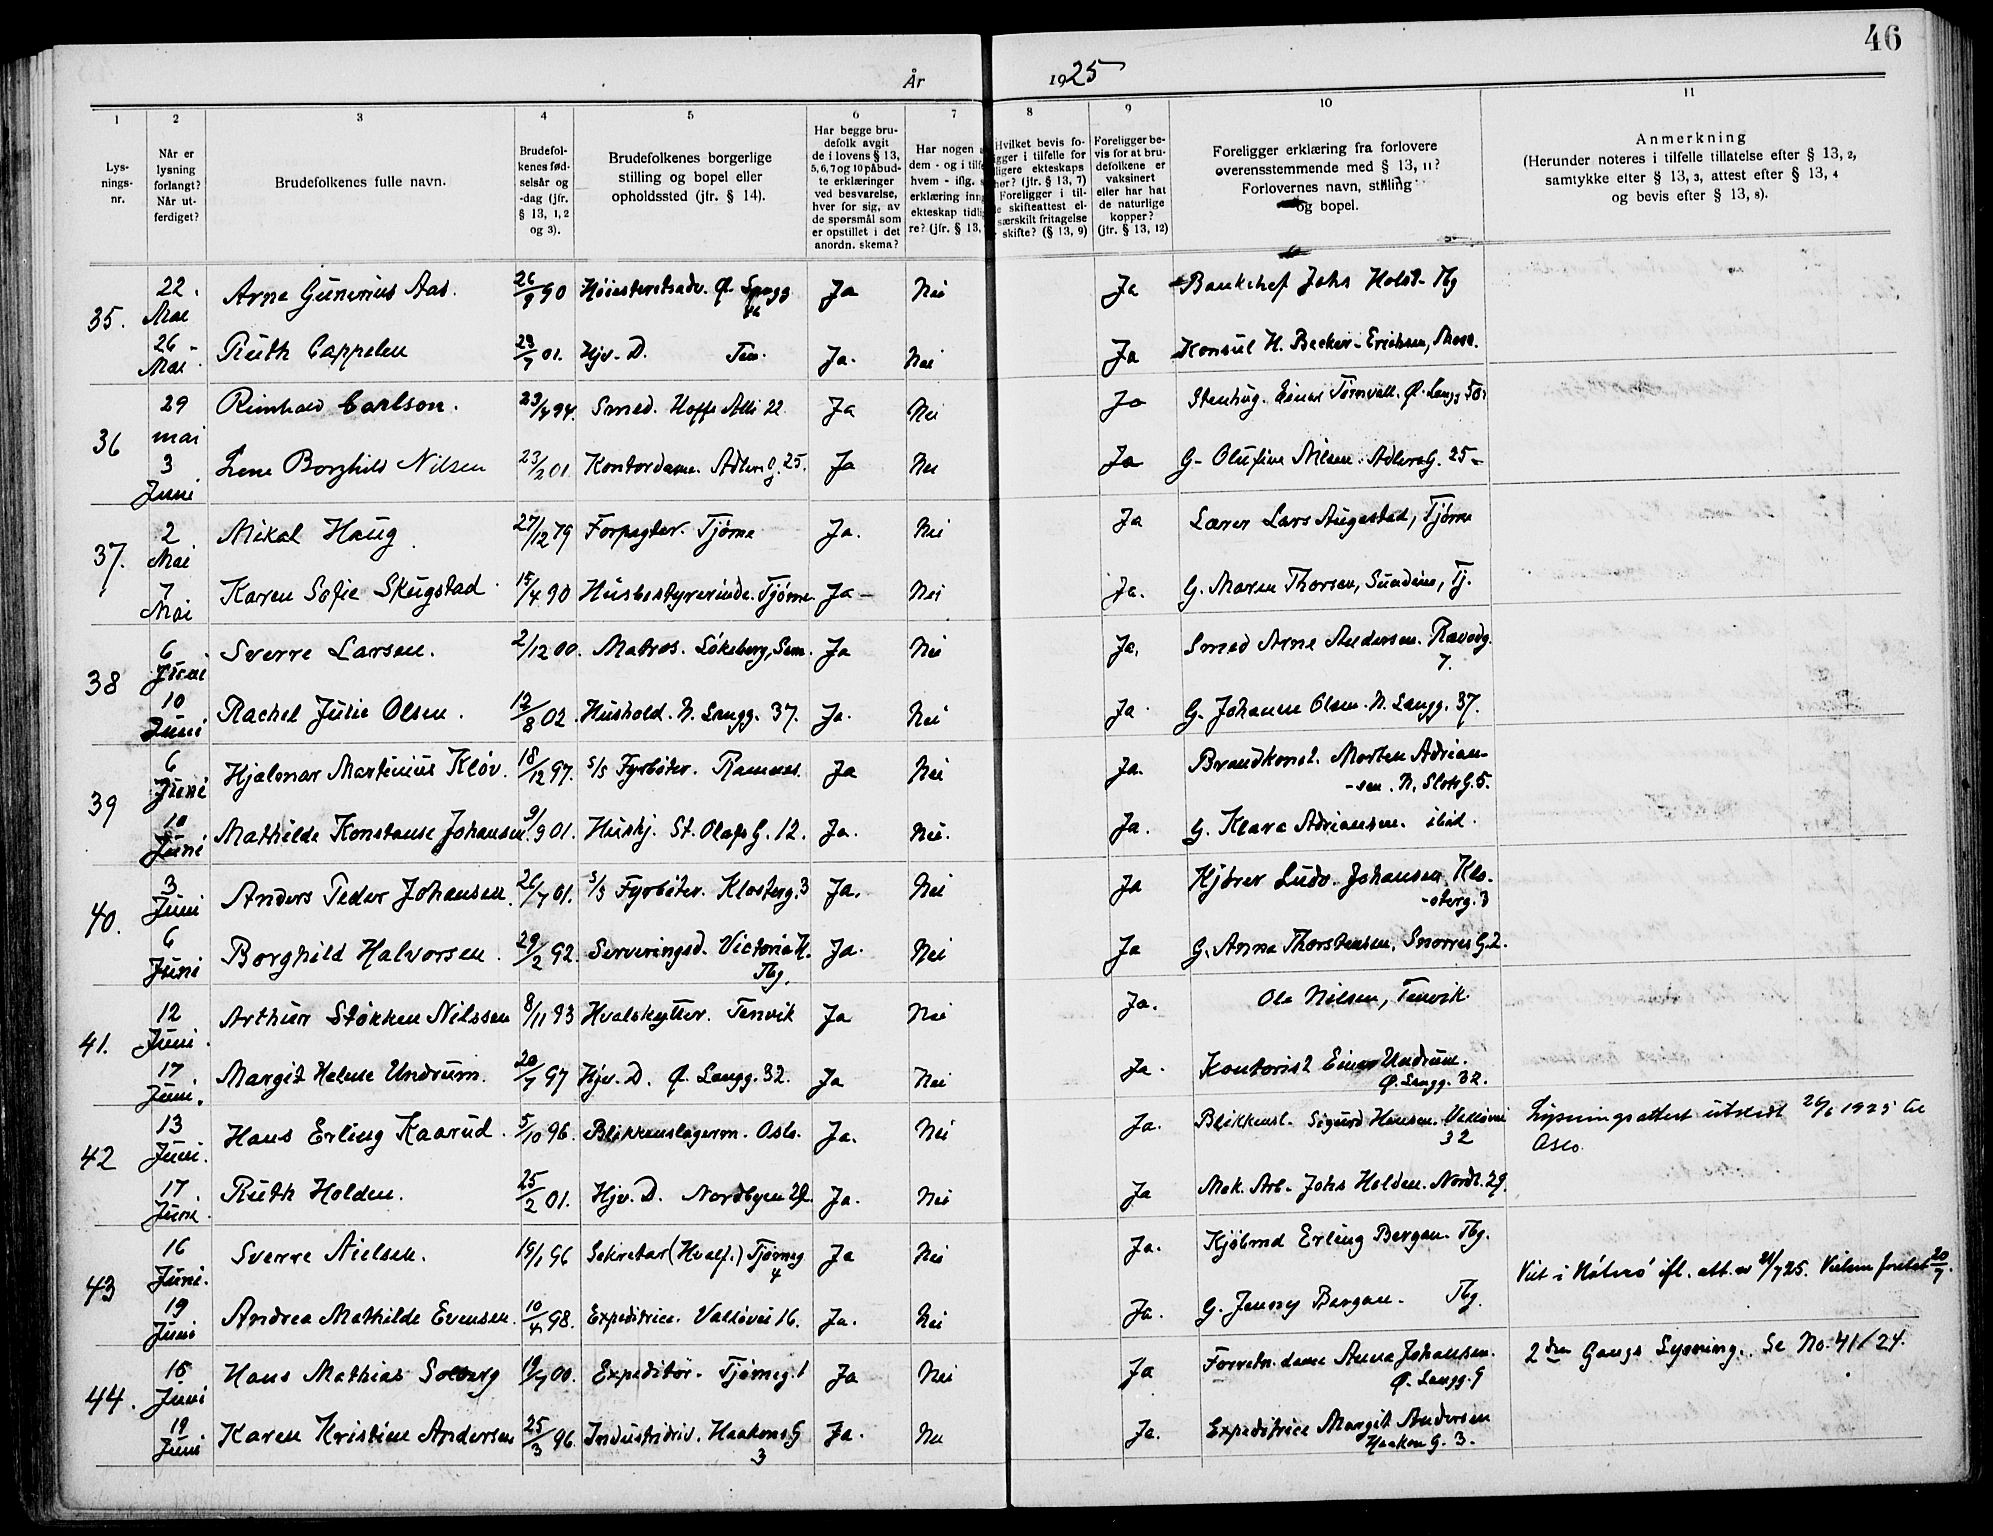 46
År 1925
1 2 3 4 5 6 7 8 9 10 11
Lys-
nings-
nr.
Når er
lysning
forlangt?
Når ut-
ferdiget?
Brudefolkenes fulle navn.
Brudefol-
kenes fød-
selsår og
-dag (jfr.
§ 13, 1, 2
og 3).
Brudefolkenes borgerlige
stilling og bopel eller
opholdssted (jfr. § 14).
Har begge bru-
defolk avgit
de i lovens § 13,
5, 6, 7 og 10 påbud-
te erklæringer
ved besvarelse,
hver for sig, av
de spørsmål som
er opstillet i det
anordn. skema?
Har nogen a
dem - og i tilfe
hvem - iflg. s
erklæring inng
ekteskap tidlig
re? (jfr. § 13,
Hvilket bevis fo-
igger i tilfelle for
ligere ekteskaps
hør? (jfr. § 13, 7)
Foreligger i til-
le skifteattest el-
særskilt fritagelse
skifte? (§ 13, 9)
Foreligger be-
vis for at bru-
defolkene er
vaksinert
eller har hat
de naturlige
kopper?
(jfr. § 13, 12)
Foreligger erklæring fra forlovere
overensstemmende med § 13, 11?
Forlovernes navn, stilling
og bopel.
Anmerkning
(Herunder noteres i tilfelle tillatelse efter § 13, 2,
samtykke efter § 13, 3, attest efter § 13, 4
og bevis efter § 13, 8).
35. 22. Mai Arne Gunerius Aas. 26/9 90 Høiesteretsadv. Ø. Langg Ja Nei Ja Bankchef Johs Holst. Tbg
26 Mai Ruth Cappelen 29/7 01. Hjv. D. Ja. Nei Ja Konsul H. Becker-Erichsen,
36 29 mai Reinhold Carlson. 23/4 94. Smed. Hoffs Allé 22 Ja Nei Ja Stenhug. Einar Tørnvall. Ø. Langg 50
3 Juni Lene Borghild Nilsen 23/2 01. Kontordame. Adlers g. 25. Ja Nei Ja G. Olufine Nilsen. Adlers G. 25
37. 2 Mai Mikal Haug 27/12 79 Forpagter. Tjøme Ja. Nei Ja Lærer Lars Augestad, Tjøme
7 Mai Karen Sofie Skugstad 15/4 90 Husbestyrerinde. Tjøme Ja Nei Ja. G. Maren Thorsen, Sundene, Tj.
38 6 Juni Sverre Larsen. 2/12 00. Matros. Løkeberg, Sem. Ja Nei Ja. Smed Arne Andersen. Rævedg.
7.
10 Juni Rachel Julie Olsen. 12/8 02. Hushold. N. Langg. 37. Ja. Nei Ja G. Johanne Olsen. N. Langg. 37.
39 6 Juni Hjalmar Martinius Kløv. 18/12 97. s/s Fyrbøter. Ramnes. Ja Nei Ja. Brandkonst. Morten Adrian-
-sen. N. Slots G. 5.
10 Juni Mathilde Konstanse Johansen. 9/9 01. Hushj. St. Olafs G. 12. Ja. Nei. Ja. G. Klara Adriansen. ibid.
40. 3 Juni Anders Peder Johansen. 26/7 01. s/s Fyrbøter. Klosterg. 3 Ja. Nei Ja Kjører Ludv. Johansen, Klo-
-sterg. 3
6 Juni Borghild Halvorsen. 29/2 92. Serveringsd. Victoria H. Ja. Nei Ja G. Anna Thorstensen, Snorres G. 2.
Tbg.
41. 12 Juni. Arthur Støkken Nilssen 8/11 93 Hvalskytter. Tenvik Ja Nei Ja. Ole Nilsen, Tenvik
17 Juni. Margit Helene Undrum. 20/7 97 Hjv. D. Ø. Langg. 32. Ja Nei Ja. Kontorist Einar Undrum.
Ø. Langg. 32.
42 13 Juni. Hans Erling Kaarud. 5/10 96. Blikkenslagerm. Oslo. Ja. Nei Ja. Blikkensl. Sigurd Hansen. Valløvei Lysningsattest utstedt 26/6 1925 til
32 Oslo.
17 Juni. Ruth Holden. 25/2 01. Hjv. D. Nordbyen 29 Ja. Nei Ja Mek. Arb. Johs Holden. Nordb. 29.
43 16 Juni. Sverre Nielsen. 15/1 96 Sekretær (Hvalf.) Tjømeg Ja Nei Ja. Kjøbmd Erling Bergan. Tbg.
4 Viet i Nøterø ifl. att. av 21/7 25. Vielsen foretat 20/7.
19 Juni Andrea Mathilde Evensen. 10/4 98. Expeditrice. Valløvei 16. Ja. Nei Ja. G. Jenny Bergan. Tbg.
44. 15 Juni Hans Mathias Solberg 19/7 00. Expeditør. Tjømeg. 1 Ja Nei Ja Forretn. dame Anna Johansen. 2den Gangs Lysning. Se No. 41/24.
Ø. Langg. 9
19 Juni Karen Kristine Andersen 25/3 96. Industridriv. Haakons G Ja. Nei Ja. Expeditrice Margit Andersen
3 Haakon G. 3.